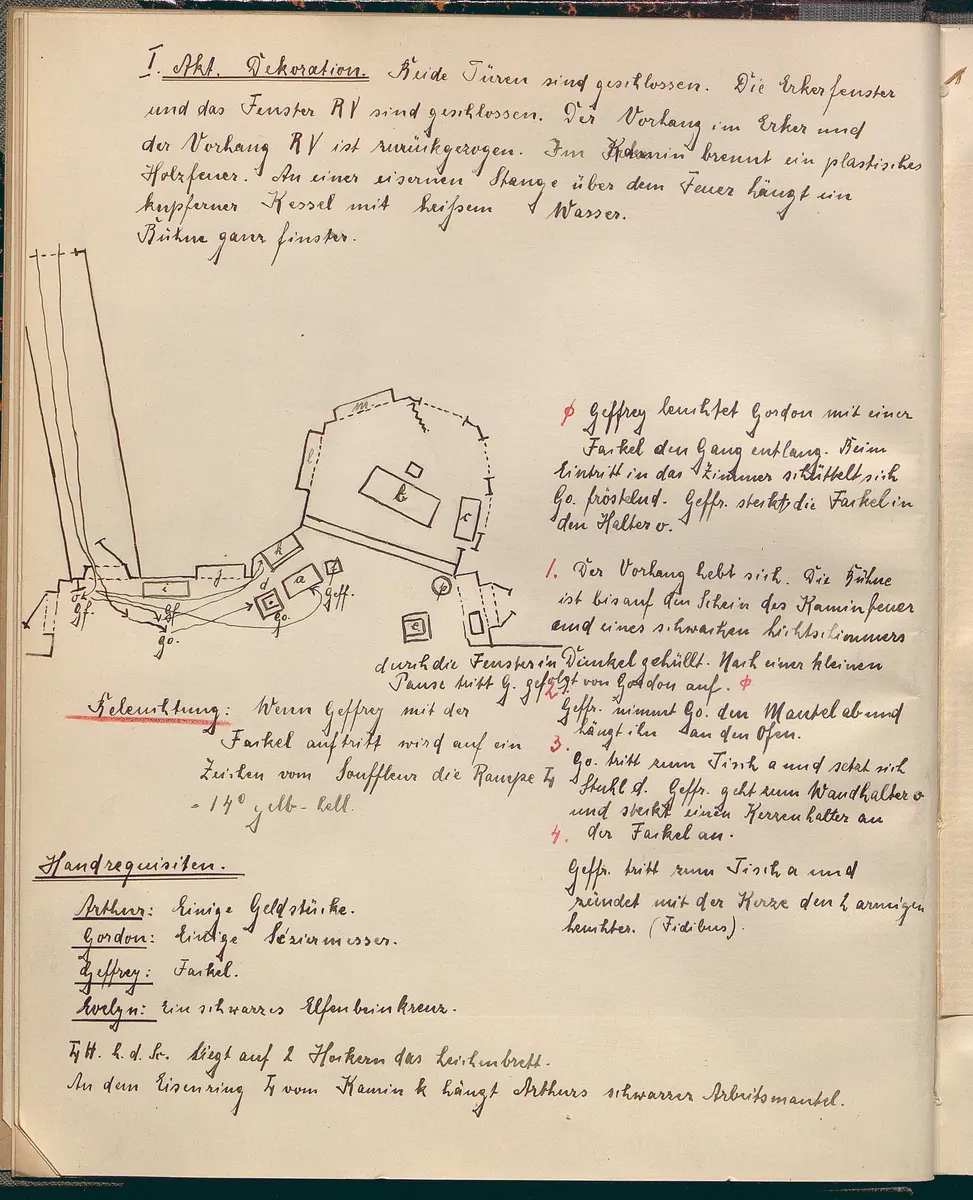 I. Akt. Dekoration. Beide Türen sind geschlossen. Die Erkerfenster
und das Fenster RV sind geschlossen. Der Vorhang im Erker und
der Vorhang RV ist zurückgezogen. Im Kamin brennt ein plastisches
Holzfeuer. An einer eisernen Stange über dem Feuer hängt ein
kupferner Kessel mit heißem Wasser.
Bühne ganz finster.
m
l
b
c
k
j
i
a
d
e
o
Gf.
Gf
go.
Go.
Geff.
φ Geffrey leuchtet Gordon mit einer
Fackel den Gang entlang. Beim
Eintritt in das Zimmer schüttelt sich
Go. fröstelnd. Geffr. steckt die Fackel in
den Halter o.
1. Der Vorhang hebt sich. Die Bühne
ist bis auf den Schein des Kaminfeuer
und eines schwachen Lichtschimmers
durch die Fenster in Dunkel gehüllt. Nach einer kleinen
Pause tritt G. gefolgt von Gordon auf. φ
2. Geffr. nimmt Go. den Mantel ab und
hängt ihn an den Ofen.
3. Go. tritt zum Tisch a und setzt sich
Stuhl d. Geffr. geht zum Wandhalter o
und steckt einen Kerzenhalter an
der Fackel an.
4. Geffr. tritt zum Tisch a und
zündet mit der Kerze den 2 armigen
Leuchter. (Fidibus).
Beleuchtung: Wenn Geffrey mit der
Fackel auftritt wird auf ein
Zeichen vom Souffleur die Rampe
= 14° gelb-hell.
Handrequisiten.
Arthur: Einige Geldstücke.
Gordon: Einige Seziermesser.
Geffrey: Fackel.
Evelyn: Ein schwarzes Elfenbeinkreuz.
H. h. d. Sc. liegt auf 2 Hockern das Leichenbrett.
An dem Eisenring vom Kamin k hängt Arthurs schwarzer Arbeitsmantel.